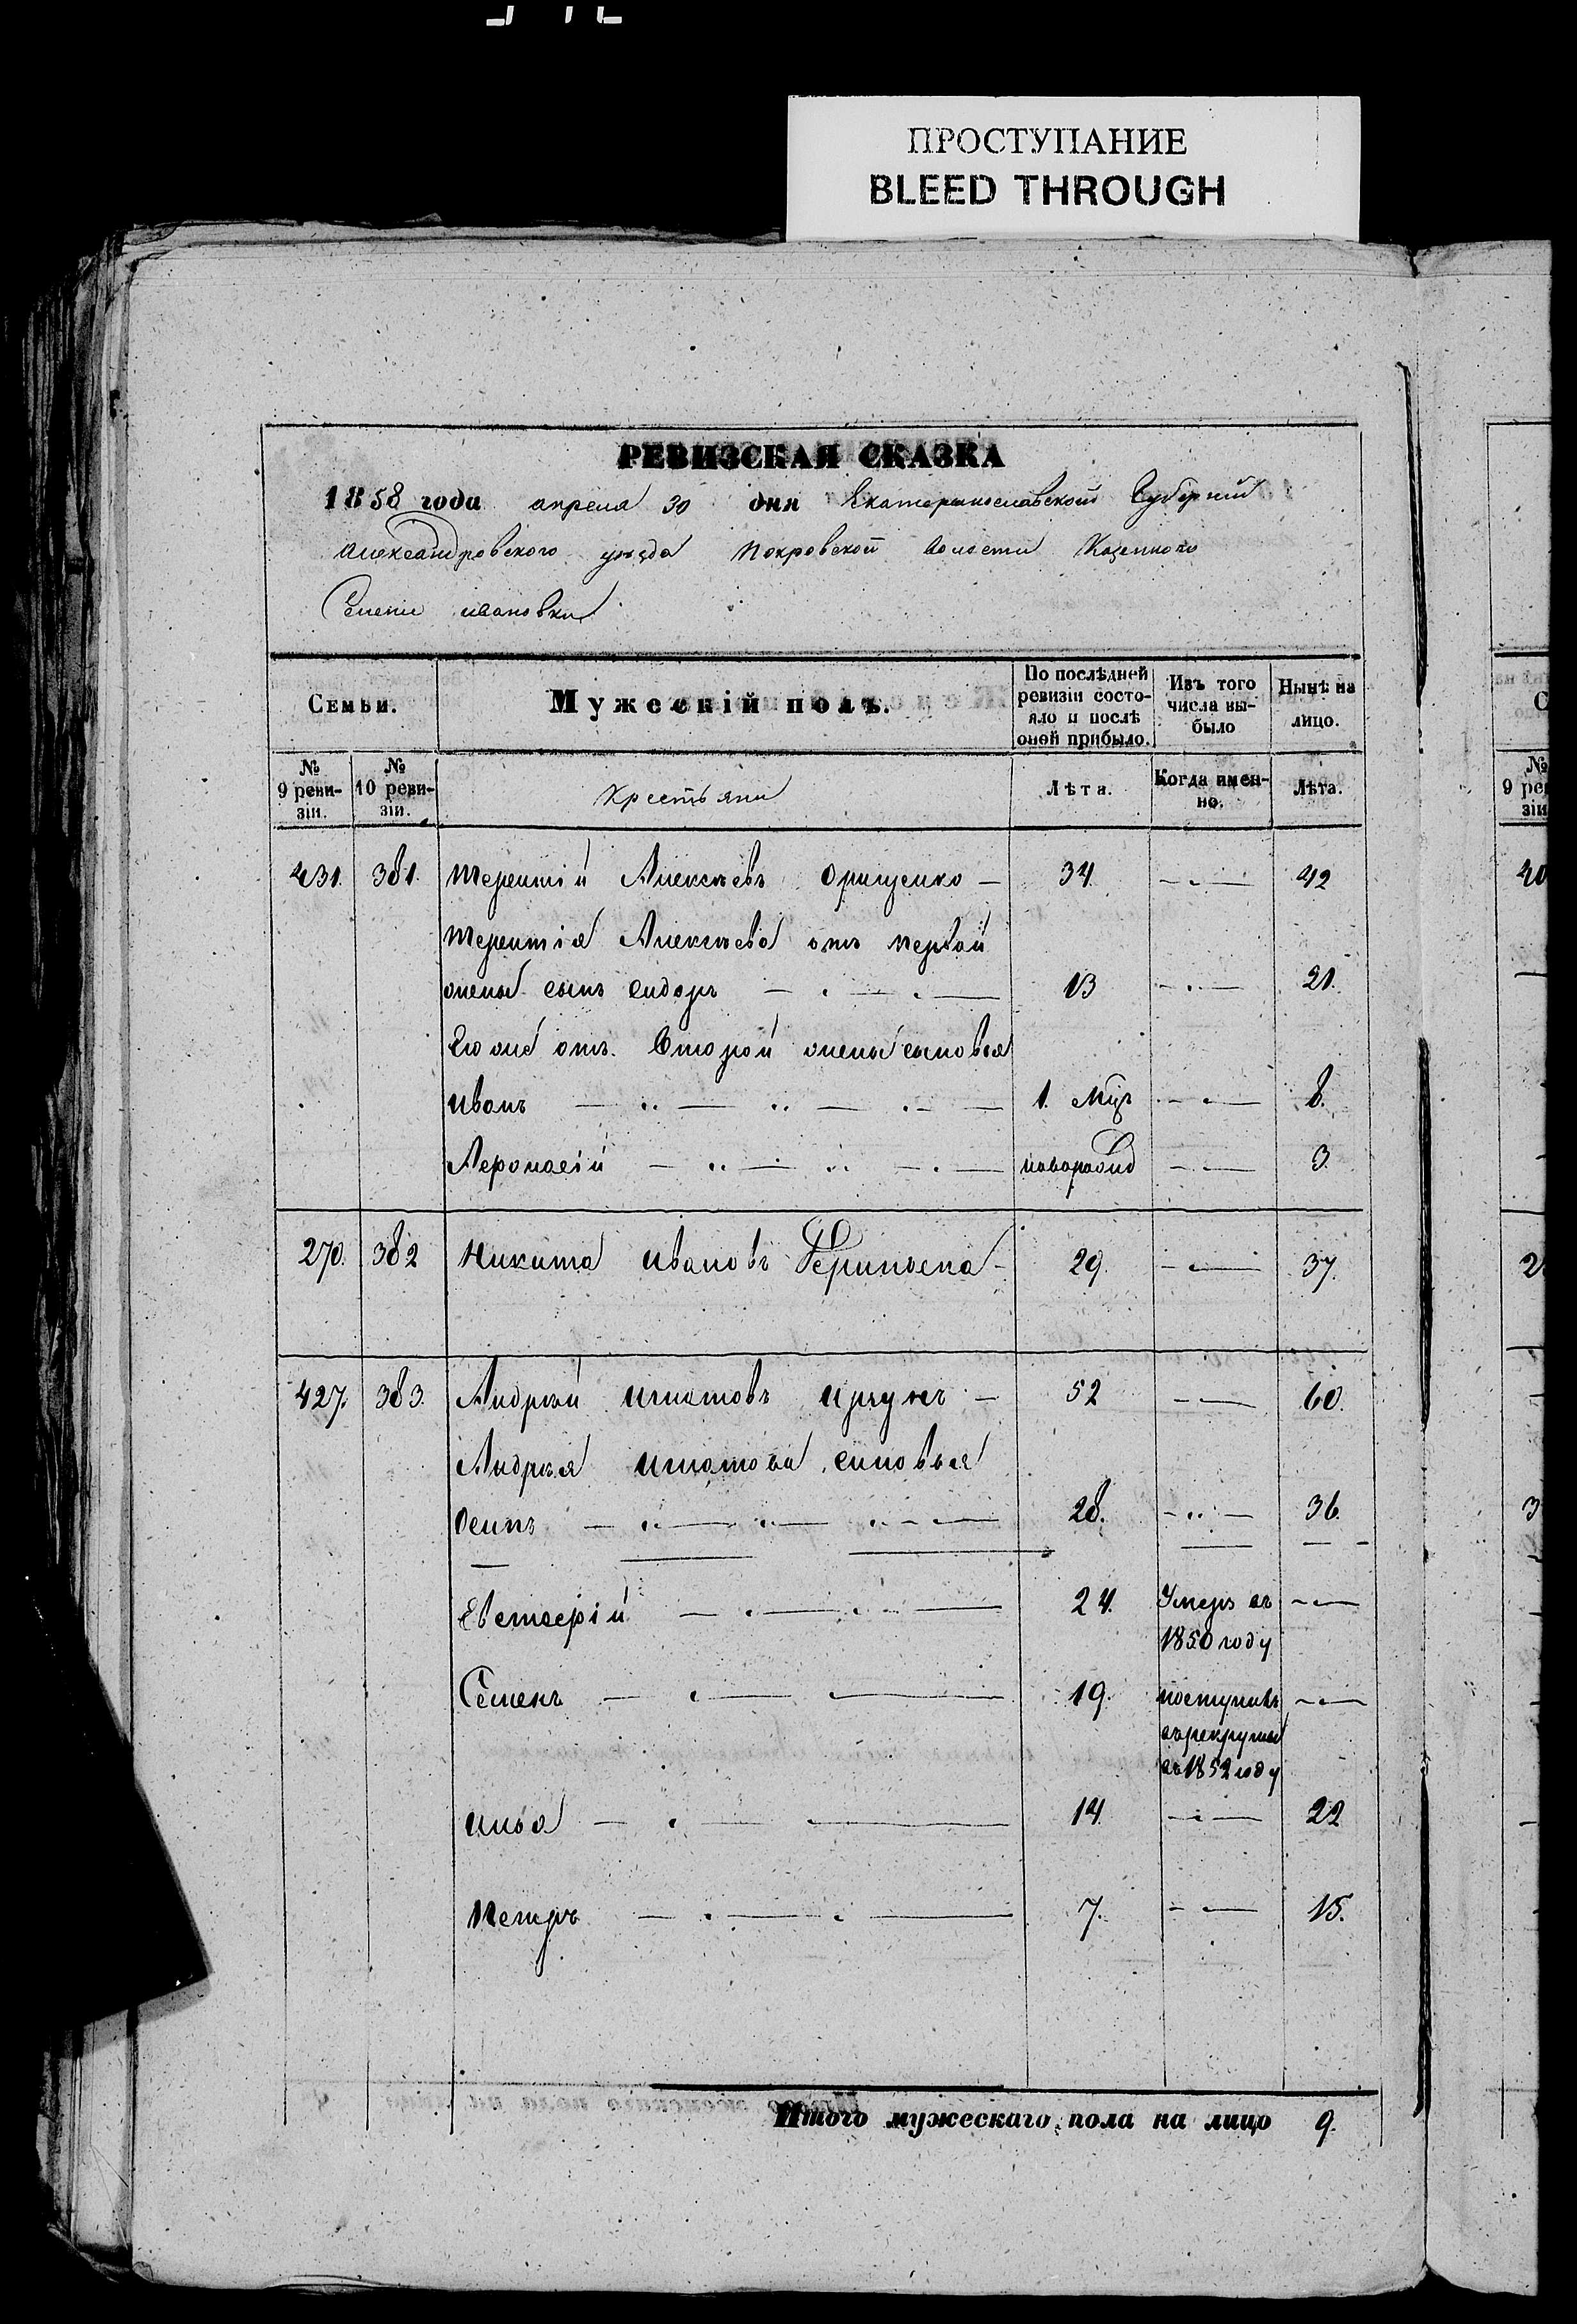 ПРОСТУПАНИЕ
BLEED THROUGH
РЕВИЗСКАЯ СКАЗКА
1858 года апреля 30 дня Екатеринославской Губерніи
Александровского уезда Покровской волости Казенного
Селения ивановки
Семьи.
Мужескій полъ.
По послѣдней ревизіи состояло и послѣ оной прибыло.
Изъ того числа выбыло
Нынѣ на лицо.
№ 9 ревизіи.
№ 10 ревизіи.
Крестьяни
Лѣта.
Когда именно.
Лѣта.
431. 381. Терентій Алексѣевъ Орищенко — 34. 42
Терентія Алексѣева отъ первой
жены сынъ сидоръ 13 21.
Его же отъ Второй жены сыновья
иванъ 1. Мцъ 8.
Афонасій новорожд 3.
270. 382 Никита ивановъ 29. 37.
427. 383. Андрѣй игнатовъ — 52 60.
Андрѣя игнатова синовья
Осипъ 28. 36.
Евстафій 24. Умеръ въ
1850 году
Семенъ 19. поступивъ
въ рекруты
въ 1852 году
илья 14. 22
Петръ 7. 15.
Итого мужескаго пола на лицо 9.
№
9 ре
зі